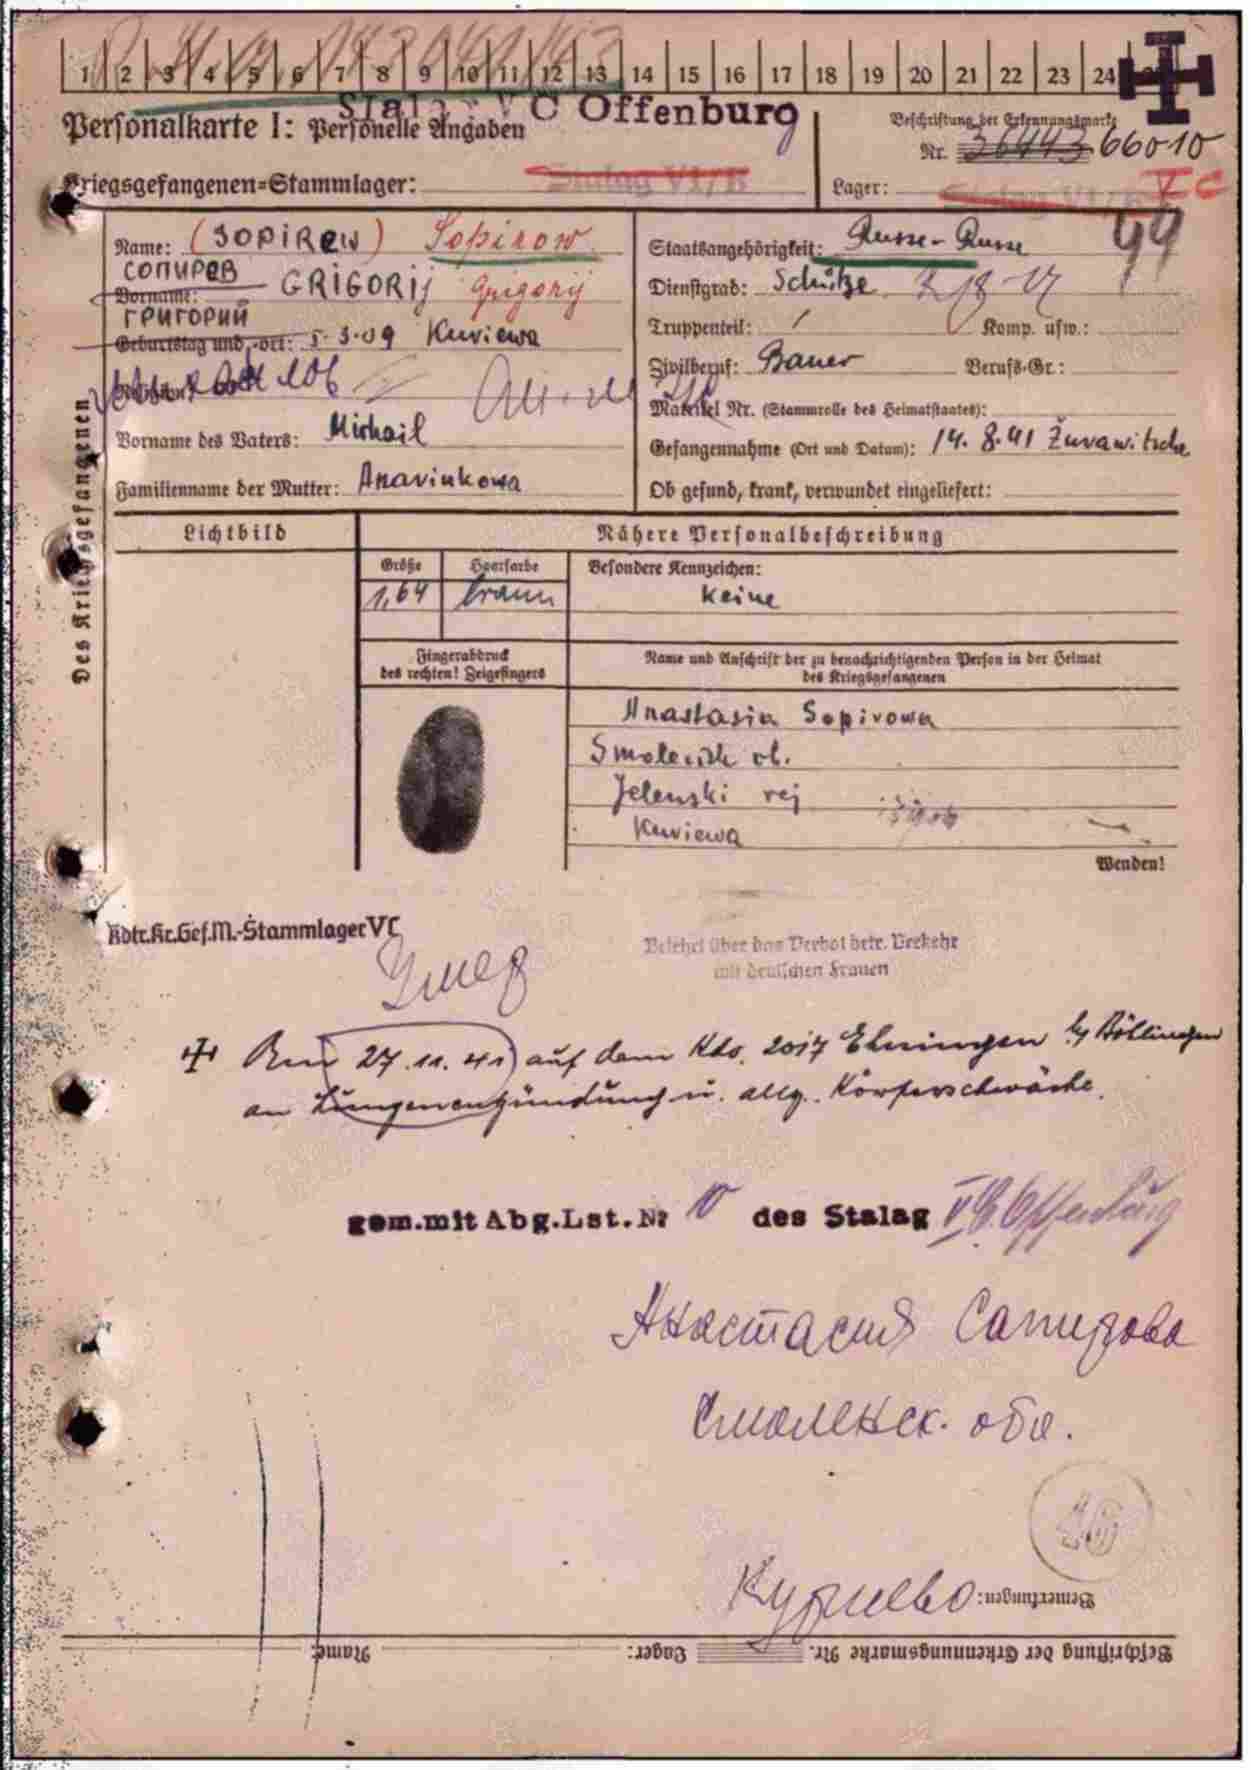 1 2 3 4 5 6 7 8 9 10 11 12 13 14 15 16 17 18 19 20 21 22 23 24
Stalag VC Offenburg
Personalkarte I: Personelle Angaben
Beschriftung der Erkennungsmarke
Nr. 36443 66010
Kriegsgefangenen=Stammlager: Stalag VI/K
Lager: Stalag VI/K V C
Des Kriegsgefangenen
Name: (SOPIREW) Sopirow
СОПИРЕВ
Vorname: GRIGORIJ Grigorij
ГРИГОРИЙ
Geburtstag und -ort: 5.3.09 Kuriewa
Vorname des Vaters: Michail
Familienname der Mutter: Anavinkowa
Staatsangehörigkeit: Russe-Russe
Dienstgrad: Schütze
Truppenteil: / Komp. usw.:
Zivilberuf: Bauer Berufs-Gr.:
Matrikel Nr. (Stammrolle des Heimatstaates):
Gefangennahme (Ort und Datum): 14.8.41 Žurawitsche
Ob gesund, krank, verwundet eingeliefert:
Lichtbild
Nähere Personalbeschreibung
Größe Haarfarbe Besondere Kennzeichen:
1,64 braun keine
Fingerabdruck
des rechten! Zeigefingers
Name und Anschrift der zu benachrichtigenden Person in der Heimat
des Kriegsgefangenen
Anastasia Sopirowa
Smolensk ob.
Jelenski rej
Kuriewa
Wenden!
Kdtr.Kr.Gef.M.-Stammlager VC
Belehrt über das Verbot betr. Verkehr
mit deutschen Frauen
Умер
Am 27.11.41 auf dem Kdo. 2017 Ehningen b/ Böblingen
an Lungenentzündung u. allg. Körperschwäche.
gem.mit Abg.Lst.Nr 10 des Stalag V C Offenburg
Анастасия Сапирова
Смоленск. обл.
16
Куриево
Bemerkungen:
Beschriftung der Erkennungsmarke Nr. Lager: Name: